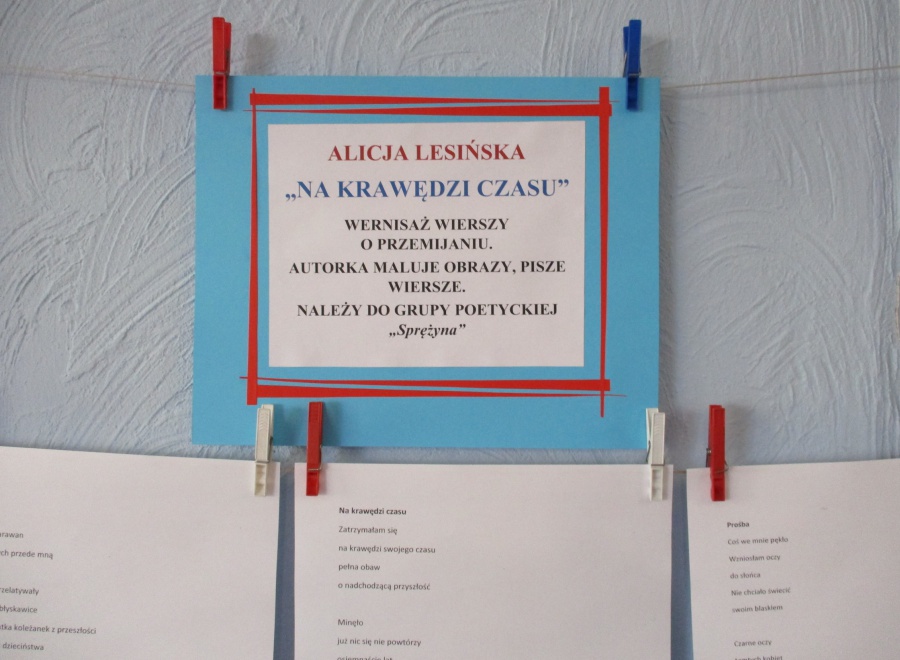 ALICJA LESIŃSKA
„NA KRAWĘDZI CZASU”
WERNISAŻ WIERSZY
O PRZEMIJANIU.
AUTORKA MALUJE OBRAZY, PISZE
WIERSZE.
NALEŻY DO GRUPY POETYCKIEJ
„Sprężyna”
przede mną
błyskawice
koleżanek z przeszłości
dzieciństwa
Na krawędzi czasu
Zatrzymałam się
na krawędzi swojego czasu
pełna obaw
o nadchodzącą przyszłość
Minęło
już nic się nie powtórzy
Prośba
Coś we mnie pękło
Wzniosłam oczy
do słońca
Nie chciało świecić
swoim blaskiem
Czarne oczy